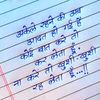 अकेले रहने की अब
आदत हो गई है
कोई बात करे तो
कर लेता हूँ
ना करे तो खुशी खुशी
रह लेता हूँ...!!